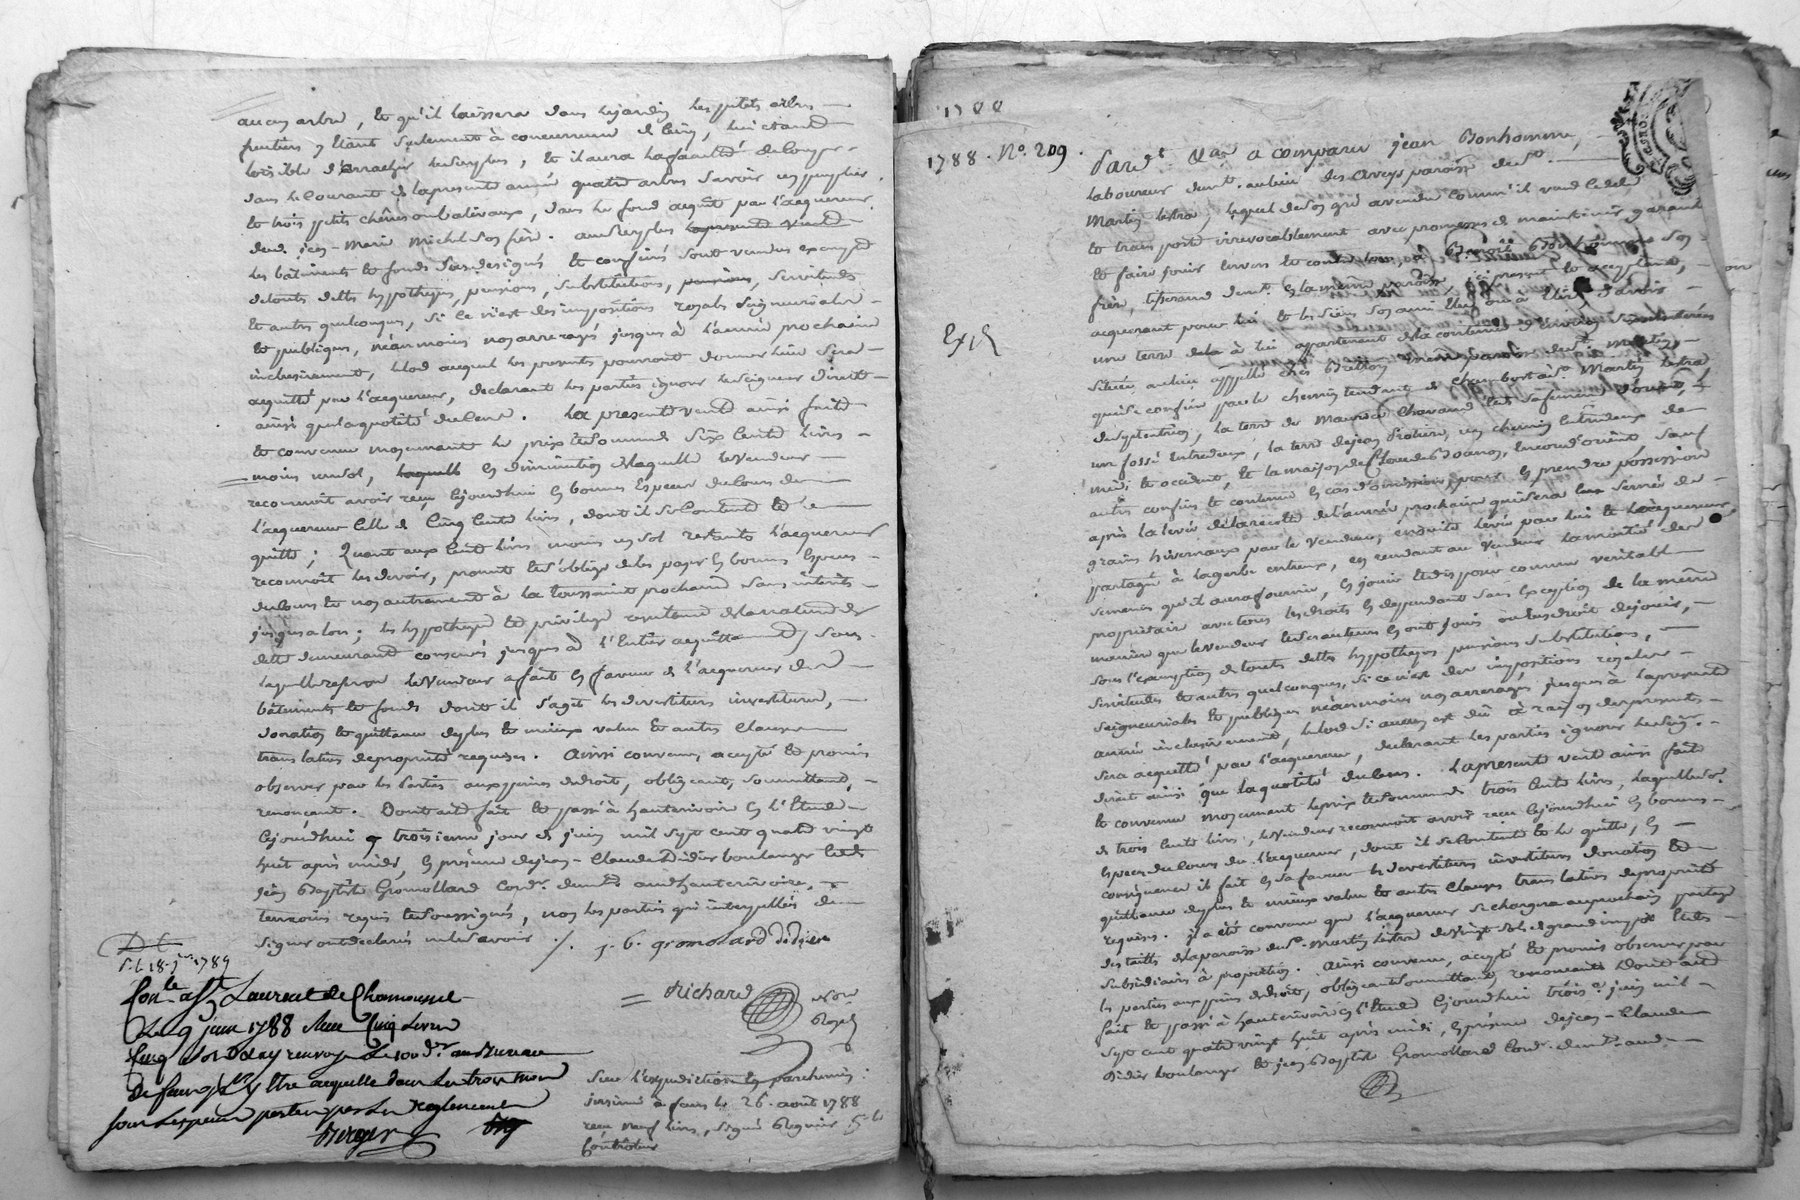 aucun arbre, et qu'il laissera dans le jardin les petits arbres
fruitiers y étant seulement à concurrence de cinq, lui étant
loisible d'arracher le surplus, et il aura la faculté de couper
dans le courant de la presente année quatre arbres savoir un peuplier
et trois petits chênes ou baliveaux, dans le fond acquit par l'acquereur
dud. jean-Marie Michel son frère. au surplus la presente vente
les bâtiments et fonds susdesignés et confinés sont vendus exempts
de touts dettes hypotheques, pensions, substitutions, pensions, servitudes
et autres quelconques, si ce n'est des impositions royales seigneuriales
et publiques, néanmoins non arreragés jusques à l'année prochaine
inclusivement, le lod auquel les presentes pourront donner lieu sera
acquitté par l'acquereur, declarant les parties ignorer le seigneur direct
ainsi que la quotité du cens. La presente vente ainsi faite
et convenue moyennant le prix et somme de six cents livres
moins un sol, laquelle en diminution de laquelle le vendeur
reconnoit avoir reçu cejourdhui en bonnes especes du cours de
l'acquereur celle de cinq cents livres, dont il se contente et le
quitte; Quant aux cents livres moins un sol restants l'acquereur
reconnoit les devoir, promet et s'oblige de les payer en bonnes especes
du cours et non autrement à la toussaint prochaine sans interets
jusques alors; les hypotheque et privilege resultants de la nature de
dette demeurant conservés jusques à l'entier acquittement, sous
laquelle reserve le vendeur a fait en faveur de l'acquereur des
bâtiments et fonds dont il s'agit les devestiture investiture,
donation et quittance de plus et mieux value et autres clauses
translatives de propriété requises. Ainsi convenu, accepté et promis
observer par les parties aux peines de droit, obligeant, soumettant,
renonçant. Dont acte fait et passé à hauterivoire en l'Etude
cejourdhui troisieme jour de juin mil sept cent quatre vingt
huit après midi, en présence de jean-Claude Didier boulanger et de
jean Baptiste Gromollard cord.r demt aud hauterivoire,
temoins requis et soussignés, non les parties qui interpellés de
signer ont declarés ne le savoir ./. j. b. gromolard didier
Richard Not.re Royal
18. 1789
Con.le a St Laurent de Chamousset
Le 9 juin 1788 Reçu Cinq Livres
Cinq sols renvoyé au Bureau
acquitté dans les trois mois
sous les peines portées par les reglements
Berger
Sur l'expedition en parchemin
insinué a feurs le 26. août 1788
reçu neuf livres, signé
Contrôleur
1788
1788. No. 209.
Exp
Pardt a comparu jean Bonhomme,
laboureur demt. au lieu des Arreys paroisse de St.
Martin lestra, lequel de son gré a vendu comm'il vend cede
et transporte irrevocablement avec promesse de maintenir garantir
et faire jouir envers et contre tous, à Benoit Bonhomme son
frère, tisserand demt. en la même paroisse, ici present et acceptant,
acquerant pour lui et les siens son ami élu ou à élire, savoir
une terre à lui appartenant de la contenue d'environ
située au lieu appellé paroisse de St Martin,
qui se confine par le chemin tendant de chambost à St Martin lestra
de septentrion, la terre de Maurice Chavand
un fossé entre deux, la terre de jean un chemin entre deux de
midi et occident, et la maison de Claude encore d'orient, sauf
autres confins et contenue en cas d'omission, pour en prendre possession
après la levée de la recolte de l'année prochaine qui sera semée de
grains hivernaux par le vendeur, ensuite levée par lui et l'acquereur
partagée à la gerbe entreux, en rendant au vendeur la moitié des
semences qu'il aura fournie, en jouir et disposer comme veritable
propriétaire avec tous les droits en dependant sans exception de la même
maniere que le vendeur et ses auteurs en ont joui ou eu droit de jouir,
sous l'exemption de touts dettes hypotheques pensions substitutions,
servitudes et autres quelconques, si ce n'est des impositions royales
seigneuriales et publiques néanmoins non arreragés jusques à la presente
année inclusivement, le lod si aucun est dû à raison des presentes
sera acquitté par l'acquereur, declarant les parties ignorer le seigr.
direct ainsi que la quotité du cens. La presente vente ainsi faite
et convenue moyennant le prix et somme de trois cents livres, laquelle so.
de trois cents livres, le vendeur reconnoit avoir reçu cejourdhui en bonnes
especes du cours de l'acquereur, dont il se contente et le quitte, en
consequence il fait en sa faveur les devestiture investiture donation et
quittance de plus et mieux value et autres clauses translatives de propriété
requises. il a été convenu que l'acquereur se chargera au prochain partage
des tailles de la paroisse de St. Martin lestra de vingt sols de grand impot et des
subsidiaires à proportion. Ainsi convenu, accepté et promis observer par
les parties aux peines de droit, obligeant soumettant, renonçant. Dont acte
fait et passé à hauterivoire en l'Etude cejourdhui trois.e juin mil
sept cent quatre vingt huit après midi, en présence de jean-Claude
Didier boulanger et jean Baptiste Gromollard cord. demt. aud.